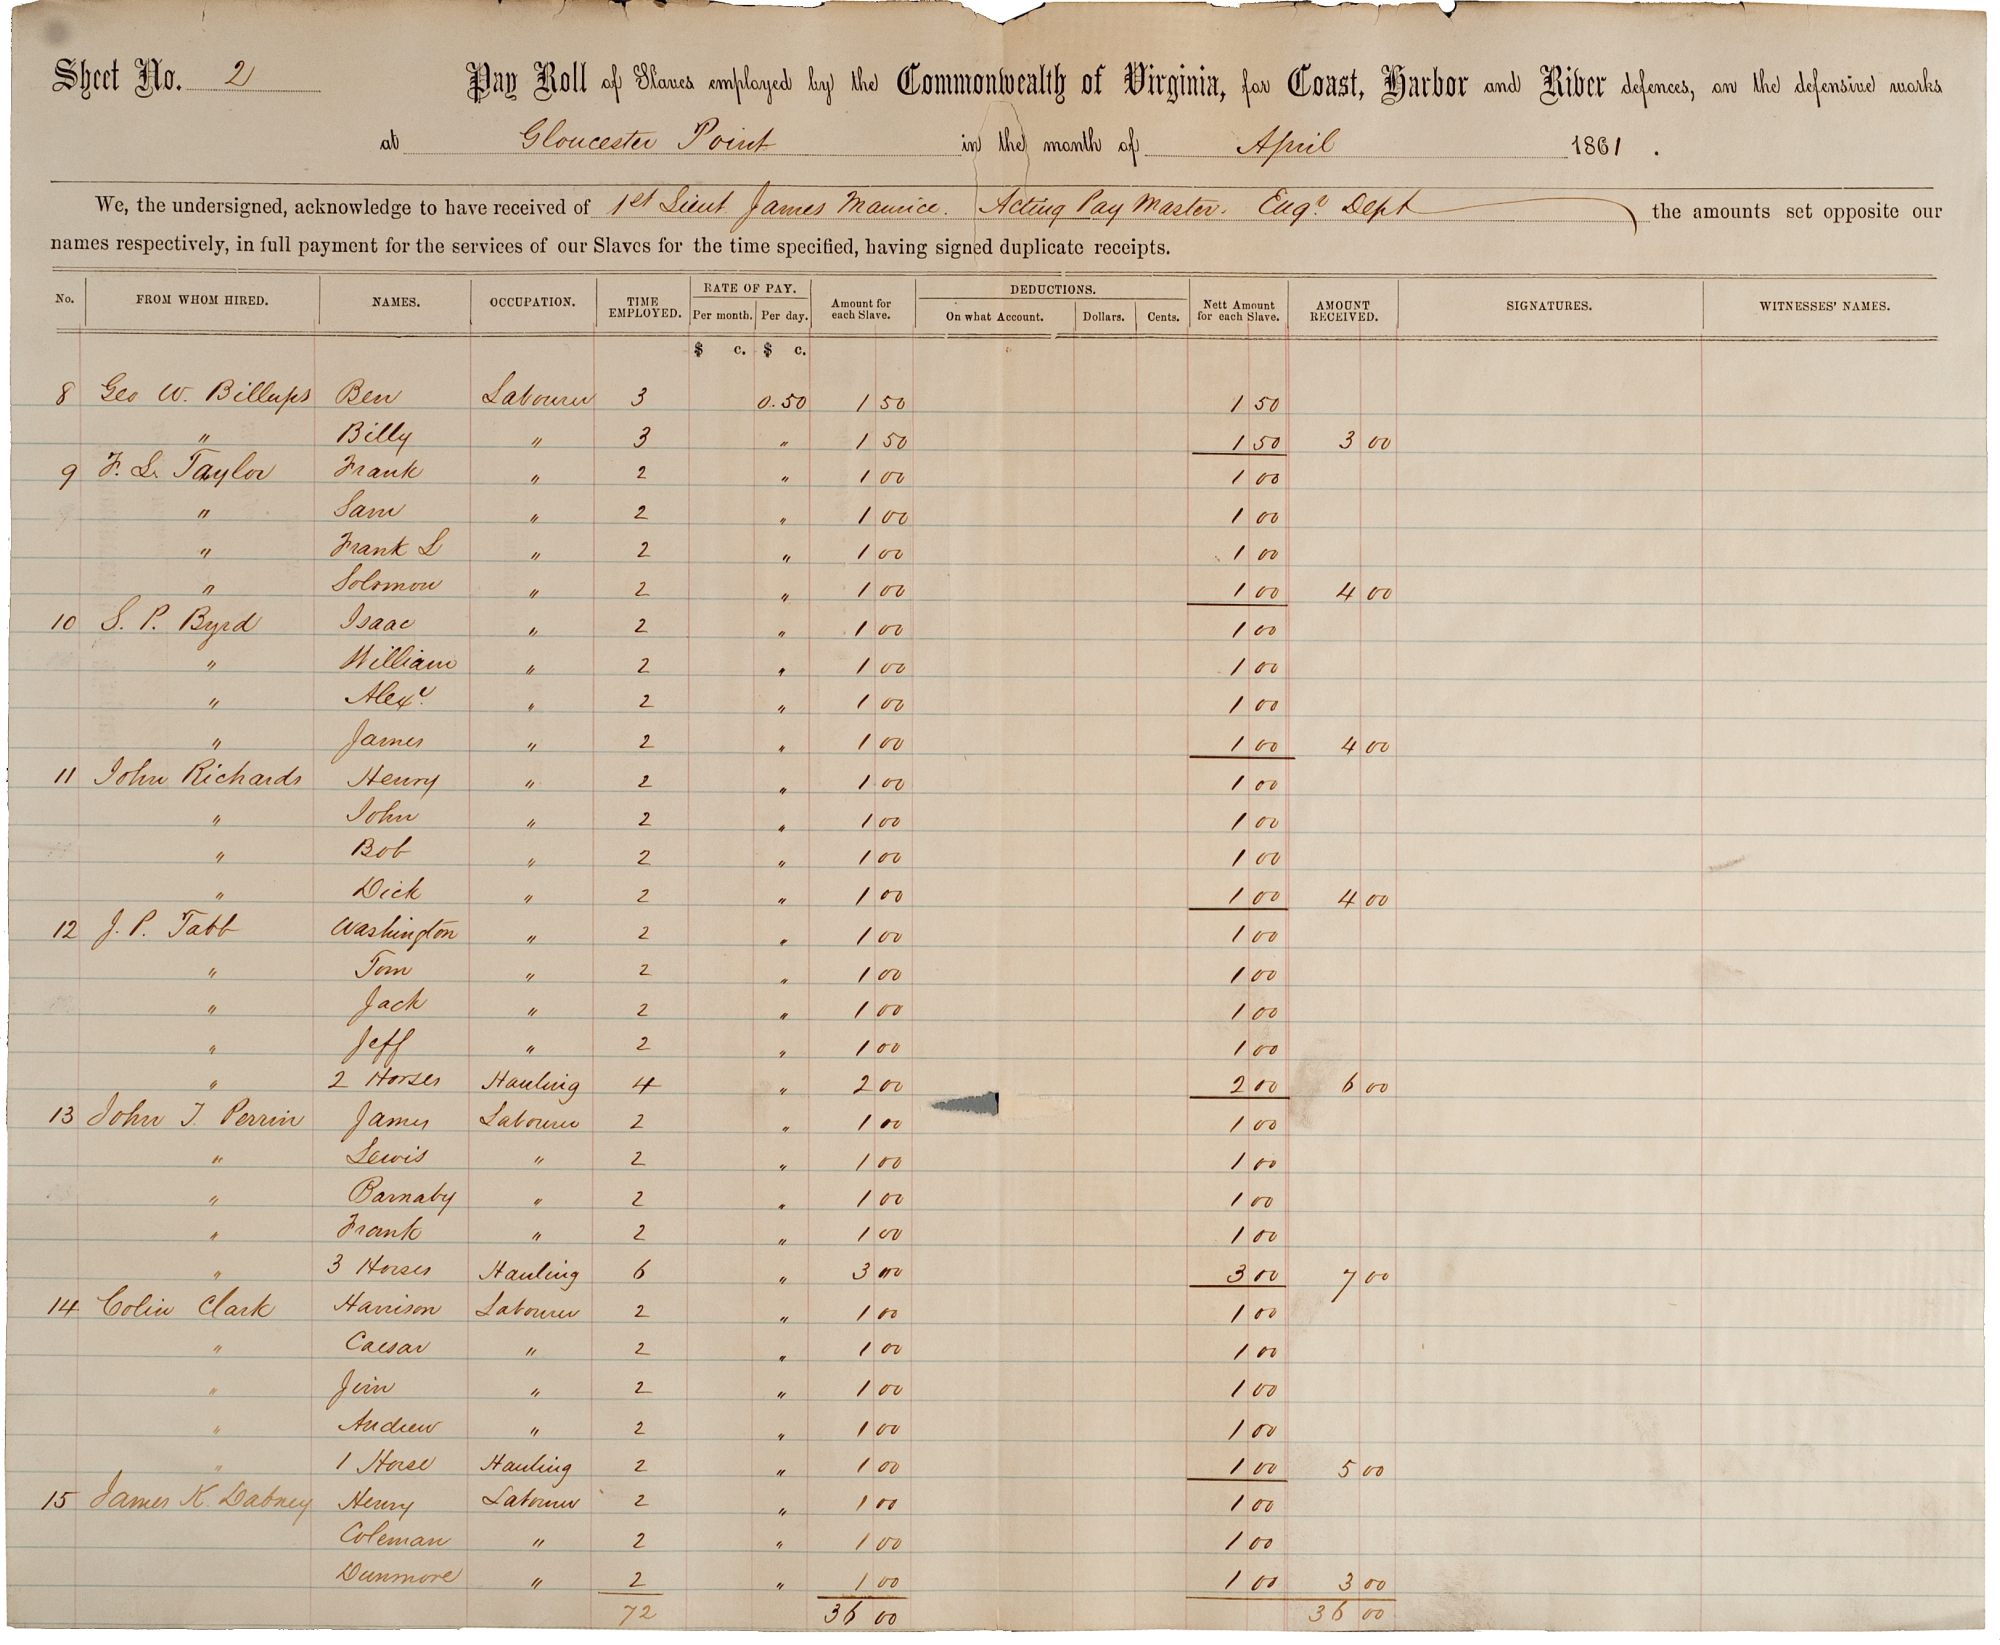 Sheet No. 2 Pay Roll of Slaves employed by the Commonwealth of Virginia, for Coast, Harbor and River defences, on the defensive works
at Gloucester Point in the month of April 1861.
We, the undersigned, acknowledge to have received of 1st Lieut James Maurice. Acting Pay Master. Engr Dept the amounts set opposite our
names respectively, in full payment for the services of our Slaves for the time specified, having signed duplicate receipts.
No. FROM WHOM HIRED. NAMES. OCCUPATION. TIME EMPLOYED. RATE OF PAY. Per month. Per day. Amount for each Slave. DEDUCTIONS. On what Account. Dollars. Cents. Nett Amount for each Slave. AMOUNT RECEIVED. SIGNATURES. WITNESSES' NAMES.
$ c. $ c.
8 Geo W. Billups Ben Labourer 3 0.50 1 50 1 50
" Billy " 3 " 1 50 1 50 3 00
9 F. L. Taylor Frank " 2 " 1 00 1 00
" Sam " 2 " 1 00 1 00
" Frank L " 2 " 1 00 1 00
" Solomon " 2 " 1 00 1 00 4 00
10 S. P. Byrd Isaac " 2 " 1 00 1 00
" William " 2 " 1 00 1 00
" Alexr " 2 " 1 00 1 00
" James " 2 " 1 00 1 00 4 00
11 John Richards Henry " 2 " 1 00 1 00
" John " 2 " 1 00 1 00
" Bob " 2 " 1 00 1 00
" Dick " 2 " 1 00 1 00 4 00
12 J. P. Tabb Washington " 2 " 1 00 1 00
" Tom " 2 " 1 00 1 00
" Jack " 2 " 1 00 1 00
" Jeff " 2 " 1 00 1 00
" 2 Horses Hauling 4 " 2 00 2 00 6 00
13 John T. Perrin James Labourer 2 " 1 00 1 00
" Lewis " 2 " 1 00 1 00
" Barnaby " 2 " 1 00 1 00
" Frank " 2 " 1 00 1 00
" 3 Horses Hauling 6 " 3 00 3 00 7 00
14 Colin Clark Harrison Labourer 2 " 1 00 1 00
" Caesar " 2 " 1 00 1 00
" Jim " 2 " 1 00 1 00
" Andrew " 2 " 1 00 1 00
" 1 Horse Hauling 2 " 1 00 1 00 5 00
15 James K. Dabney Henry Labourer 2 " 1 00 1 00
Coleman " 2 " 1 00 1 00
Dunmore " 2 " 1 00 1 00 3 00
72 36 00 36 00